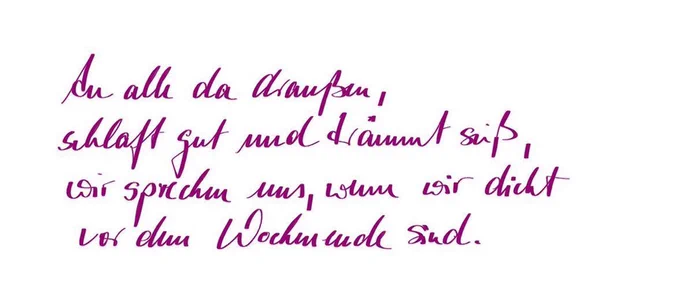 An alle da draußen,
schlaft gut und träumt süß,
wir sprechen uns, wenn wir dicht
vor dem Wochenende sind.